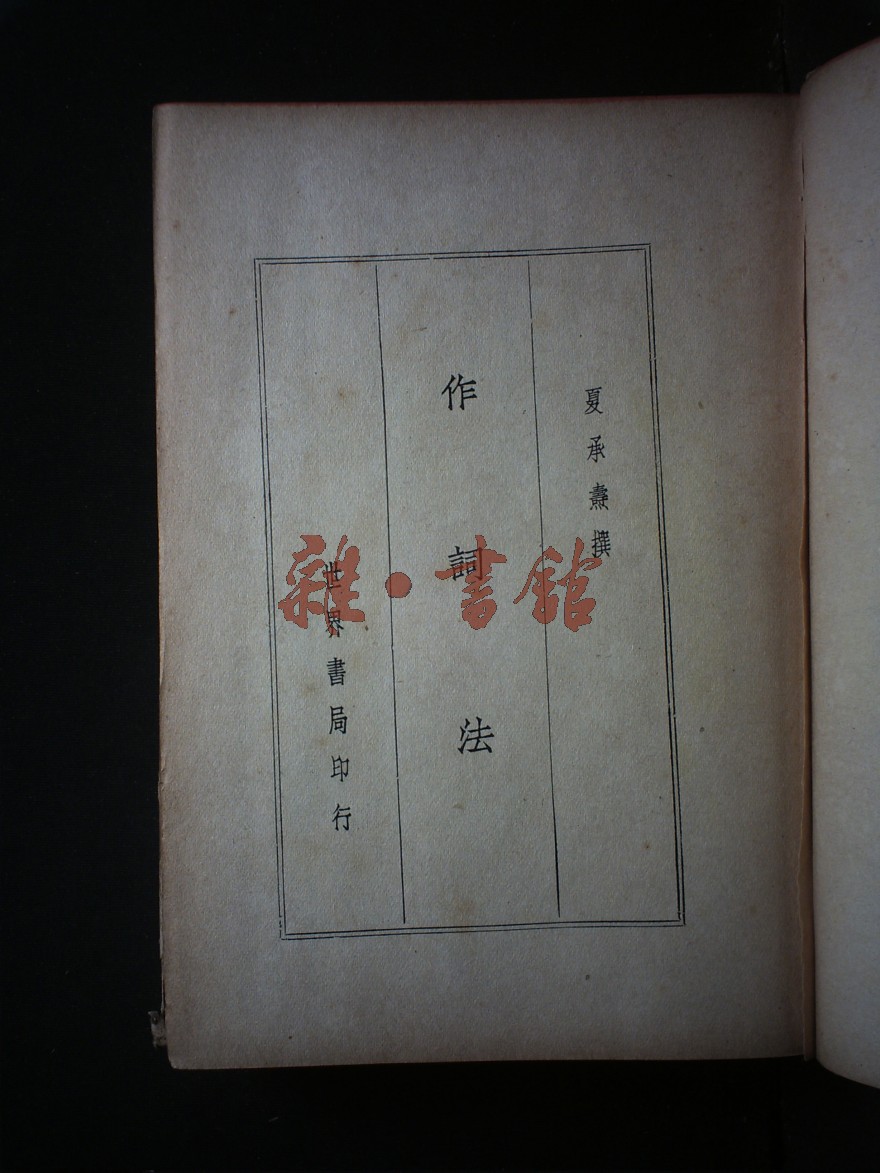 夏承燾撰
作詞法
世界書局印行
雜·書館